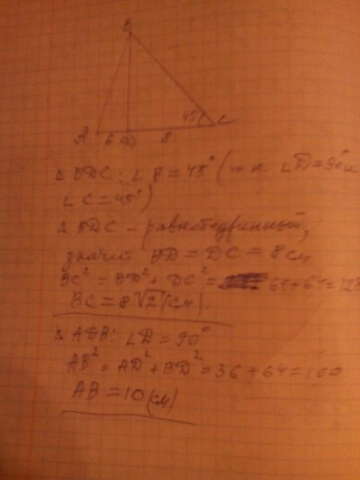 B
45°
A 6 D 8 C
△ BDC: ∠B = 45° (т.к ∠D=90° и
∠C=45°)
△ BDC - равнобедренный,
значит BD = DC = 8 см
BC² = BD² + DC² = 64+64=128
BC = 8√2 (см)
△ ADB: ∠D = 90°
AB² = AD² + BD² = 36 + 64 = 100
AB = 10 (см)